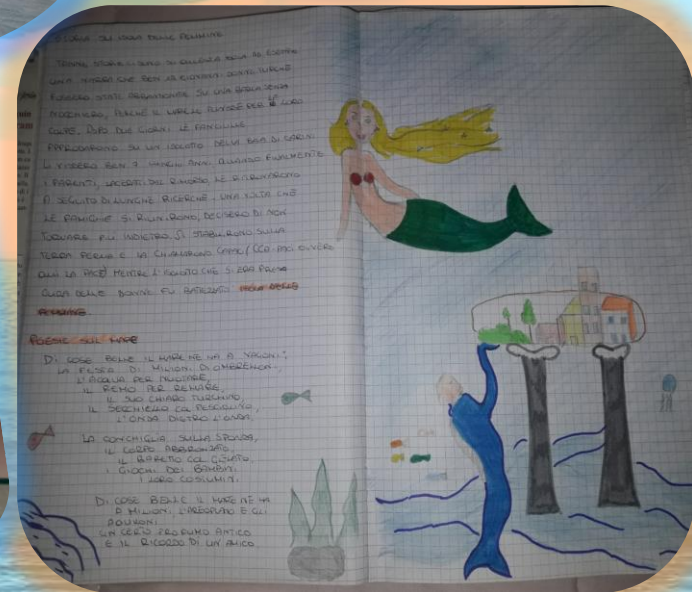 STORIA SU ISOLA DELLE FEMMINE
STORIE SI
UNA CHE BEN 13 GIOVANI DONNE TURCHE
FOSSERO STATE ABBANDONATE SU UNA BARCA SENZA
NOCCHIERO, PER LORO
COLPE. DOPO DUE GIORNI LE FANCIULLE
APPRODARONO SU UN ISOLOTTO DELLA BAIA DI CARINI
LI VISSERO BEN 7 LUNGHI ANNI QUANDO FINALMENTE
I PARENTI, DEL RIMORSO, LE RITROVARONO
A SEGUITO DI LUNGHE RICERCHE. UNA VOLTA CHE
LE FAMIGLIE SI RIUNIRONO, DECISERO DI NON
TORNARE PIÙ INDIETRO. SI STABILIRONO SULLA
TERRA FERMA E LA CHIAMARONO CAPAC/ OVVERO
QUI LA PACE MENTRE L'ISOLOTTO CHE SI ERA PRESO
CURA DELLE DONNE FU BATEZZATO ISOLA DELLE
FEMMINE.
POESIE SUL MARE
DI COSE BELLE IL MARE NE HA A VAGONI:
LA FILA DI MILIONI DI OMBRELLONI
L'ACQUA PER NUOTARE,
IL REMO PER REMARE,
IL SUO CHIARO TURCHINO,
IL SECCHIELLO COL PESCIOLINO,
L'ONDA DIETRO L'ONDA.
LA CONCHIGLIA SULLA SPONDA,
IL CORPO ABBRONZATO,
IL BARETTO COL GELATO,
I GIOCHI DEI BAMBINI
I LORO COSTUMINI.
DI COSE BELLE IL MARE NE HA
A MILIONI, E GLI
AQUILONI
UN CERTO PROFUMO ANTICO
E IL RICORDO DI UN AMICO